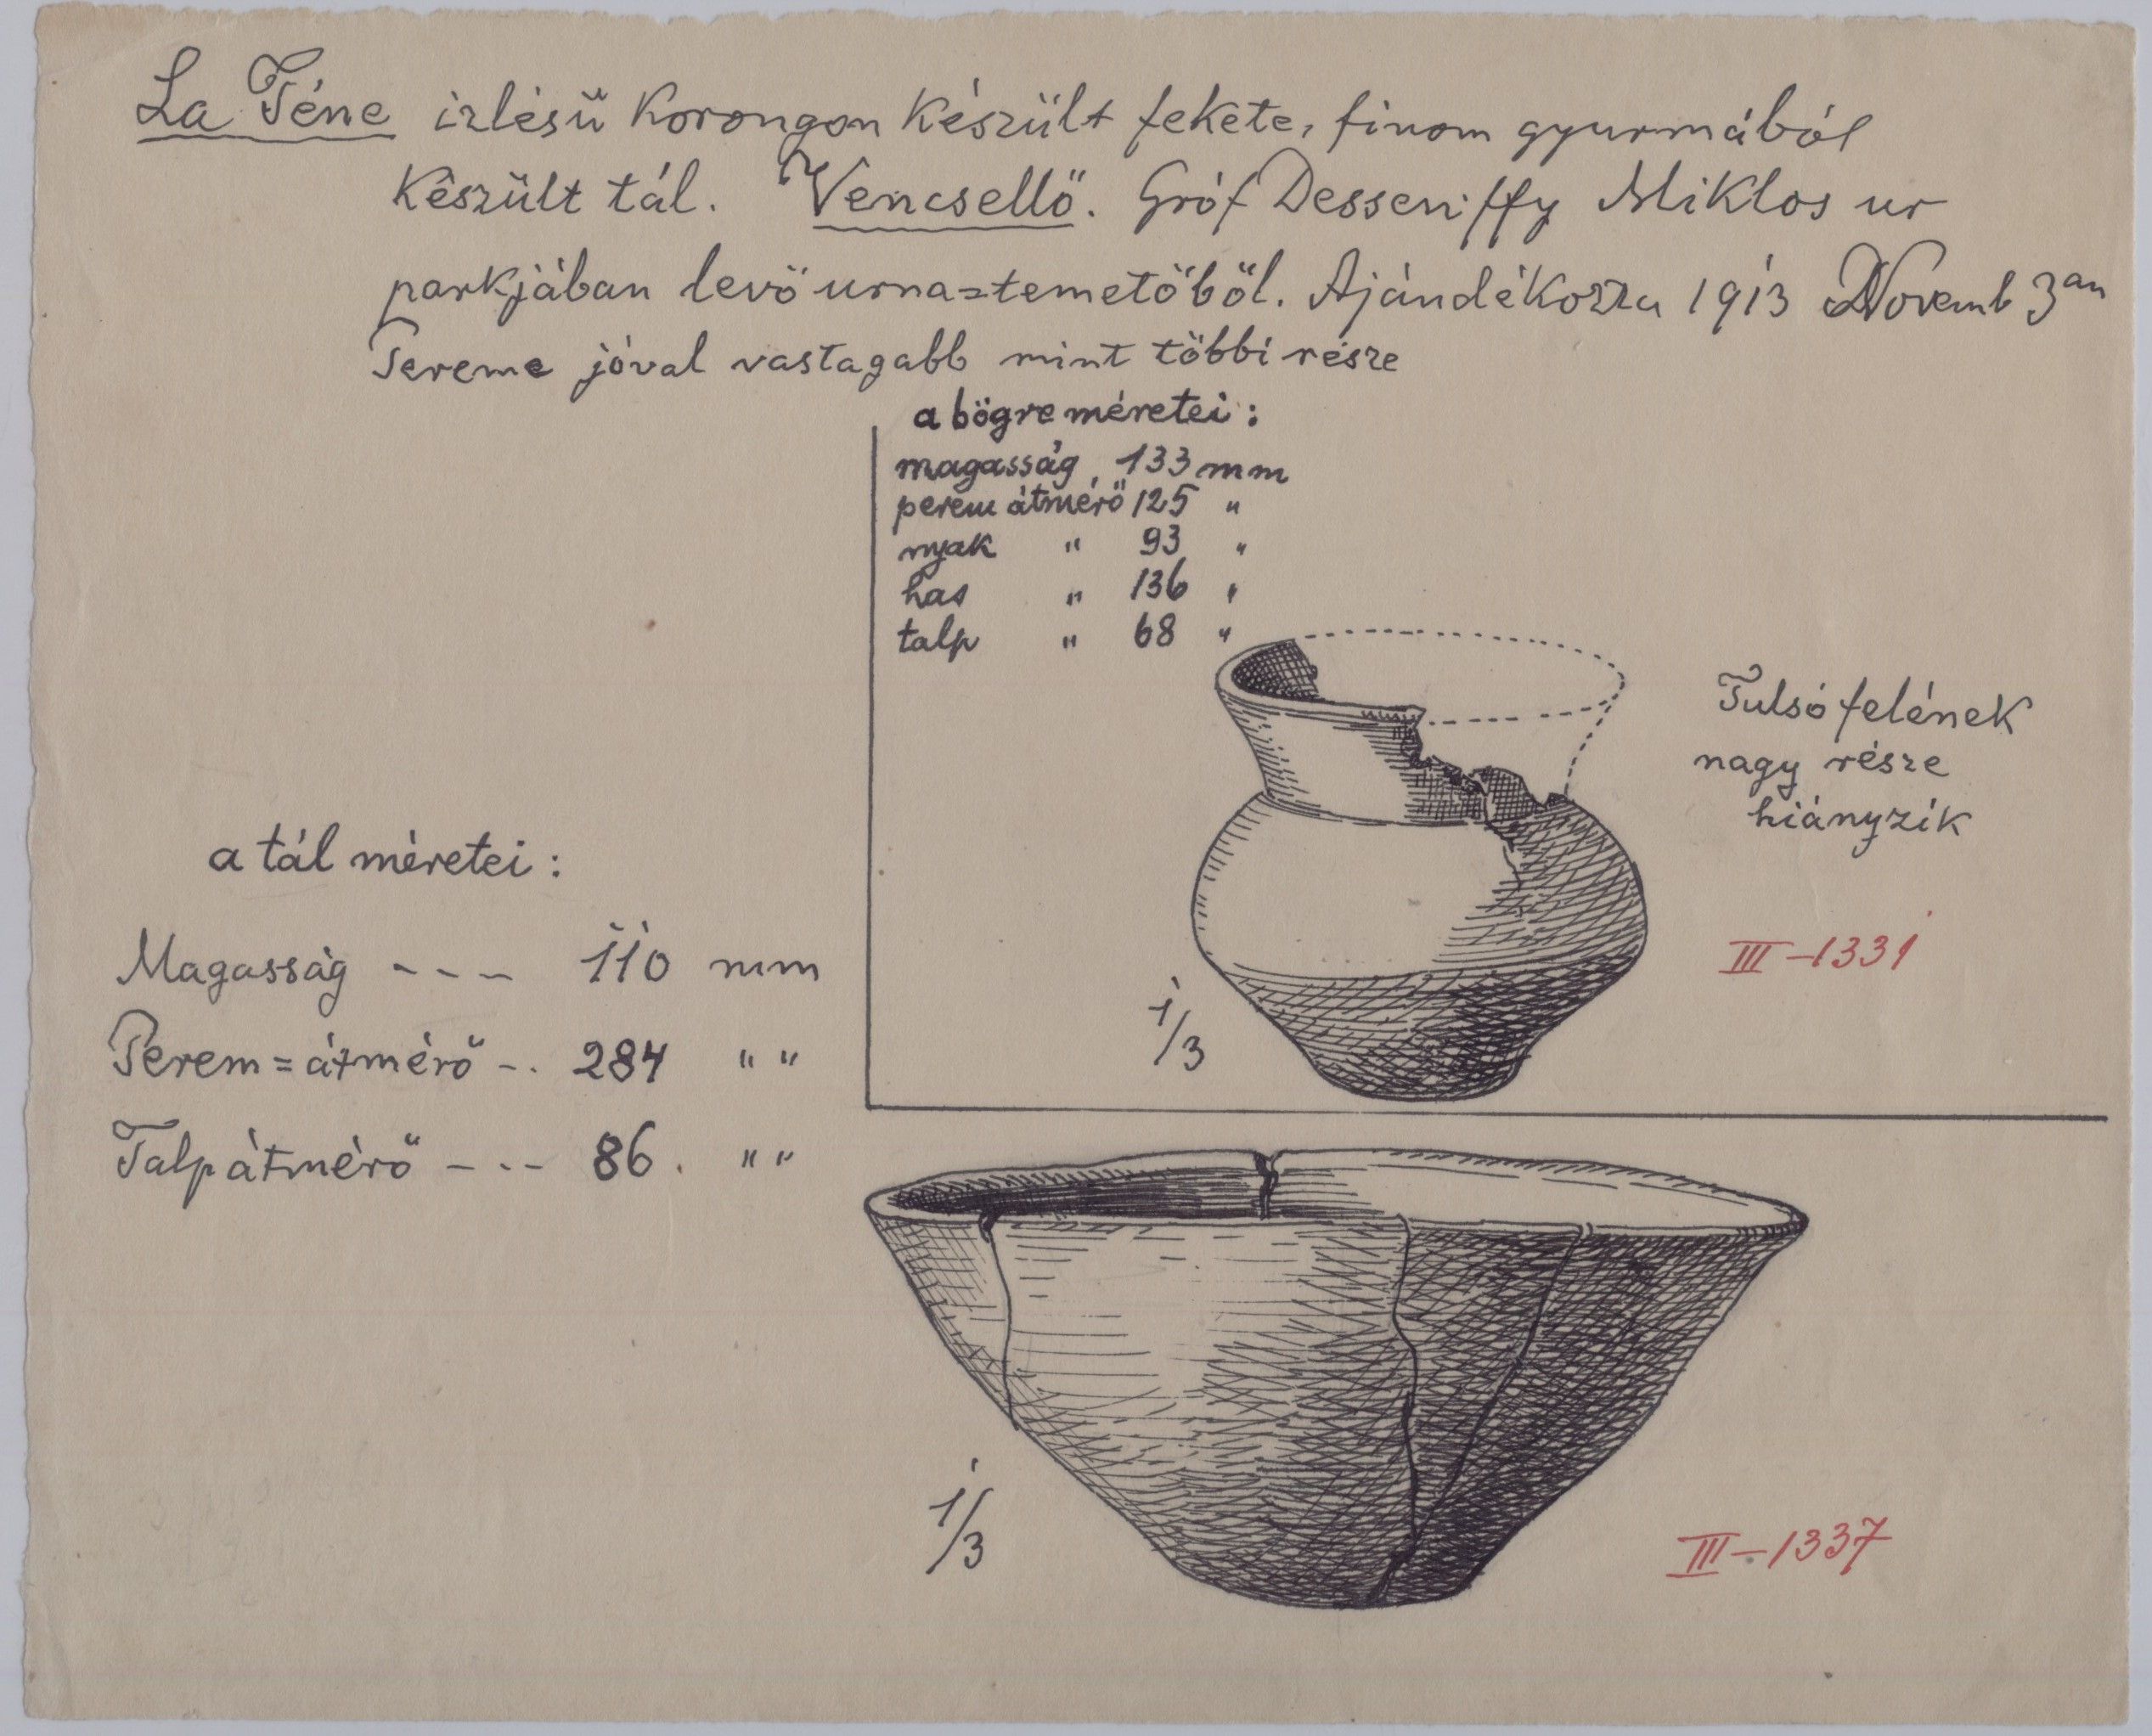 La Téne izlésü korongon készült fekete, finom gyurmából
készült tál. Vencsellő. Gróf Dessenffy Miklos ur
parkjában levő urna=temetőből. Ajándékozza 1913 Novemb 3an
Pereme jóval vastagabb mint többi része
a bögre méretei:
magasság 133 mm
perem átmérő 125 "
nyak " 93 "
has " 136 "
talp " 68 "
Tulsó felének
nagy része
hiányzik
III-1331
1/3
a tál méretei:
Magasság --- 110 mm
Perem=átmérő -. 284 " "
Talpátmérő --- 86. " "
1/3
III-1337